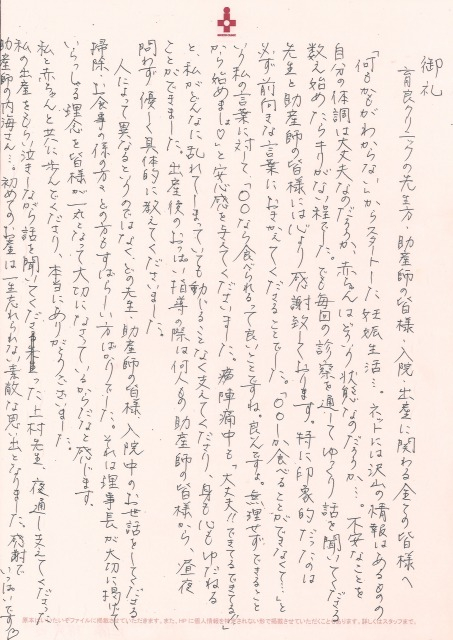 御礼
育良クリニックの先生方・助産師の皆様・入院・出産に関わる全ての皆様へ
「何もかもがわからない」からスタートした妊娠生活…。ネットには沢山の情報はあるものの
自分の体調は大丈夫なのだろうか、赤ちゃんはどういう状態なのだろうか…。不安なことを
数え始めたらキリがない程でした。でも毎回の診察を通してゆっくり話を聞いてくださる
先生と助産師の皆様には心より感謝致しております。特に印象的だったのは
必ず前向きな言葉におきかえてくださることでした。「〇〇しか食べることができなくて…」と
いう私の言葉に対して、「〇〇なら食べられるって良いことですね。良いんですよ。無理せずできること
から始めましょ♡」と安心感を与えてくださいました。陣痛中も「大丈夫!!できてるできてる!」
と、私がどんなに乱れてしまっていても動じることなく支えてくださり、身も心もゆだねる
ことができました。出産後のおっぱい指導の際は何人もの助産師の皆様から、昼夜
問わず優しく具体的に教えてくださいました。
人によって異なるというのではなく、どの先生・助産師の皆様、入院中のお世話をしてくださる
掃除、お食事の係の方々どの方もすばらしい方ばかりでした。それは理事長が大切に掲げて
いらっしゃる理念を皆様が一丸となって大切になさっているからだなと感じます。
私と赤ちゃんと共に歩んでくださり、本当にありがとうございました。
私の出産をもらい泣きしながら話を聞いてくださった上村先生、夜通し支えてくださった
助産師の内海さん…。初めてのお産は一生忘れられない素敵な思い出となりました。感謝で
いっぱいです♡
原本はいただいたいぞファイルに掲載させていただきます。また、HPに個人情報を除させない形で掲載させていただくことがあります。詳しくはスタッフまで。